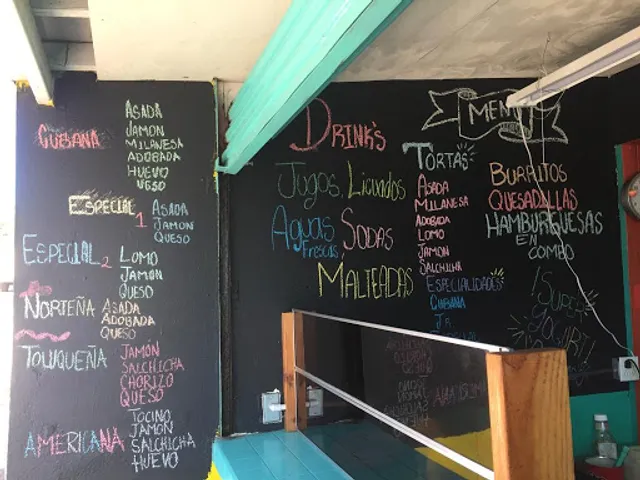 CUBANA
ASADA
JAMON
MILANESA
ADOBADA
HUEVO
QUESO
ESPECIAL 1
ASADA
JAMON
QUESO
ESPECIAL 2
LOMO
JAMON
QUESO
NORTEÑA
ASADA
ADOBADA
QUESO
TOLUQUEÑA
JAMÓN
SALCHICHA
CHORIZO
QUESO
AMERICANA
TOCINO
JAMON
SALCHICHA
HUEVO
DRINK'S
JUGOS, LICUADOS
AGUAS FRESCAS, SODAS
MALTEADAS
TORTAS
ASADA
MILANESA
ADOBADA
LOMO
JAMON
SALCHICHA
ESPECIALIDADES
CUBANA
MENÚ
BURRITOS
QUESADILLAS
HAMBURGUESAS
EN
COMBO
¡SUPER